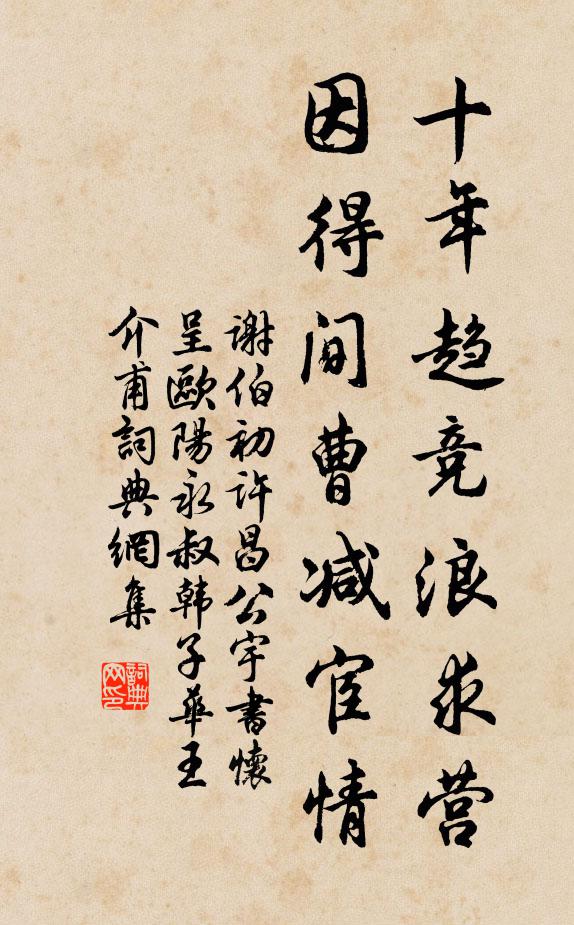 十年趋竞浪求营
因得闲曹减宦情
谢伯初许昌公宇书怀
呈欧阳永叔韩子华王
介甫词典网集
词典网印